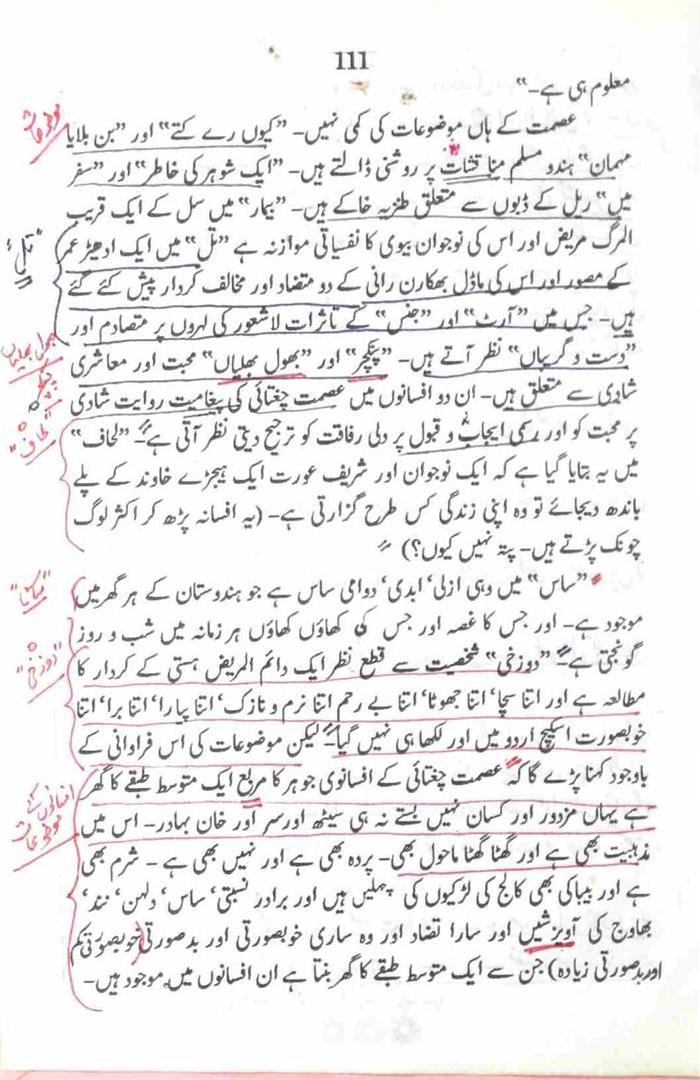 111
معلوم ہی ہے۔"
عصمت کے ہاں موضوعات کی کمی نہیں۔ "کیوں رے کتے" اور "بن بلایا
مہمان" ہندو مسلم مناقشات پر روشنی ڈالتے ہیں۔ "ایک شوہر کی خاطر" اور "سفر
میں" ریل کے ڈبوں سے متعلق طنزیہ خاکے ہیں۔ "بیمار" میں سل کے ایک قریب
المرگ مریض اور اس کی نوجوان بیوی کا نفسیاتی موازنہ ہے "تل" میں ایک ادھیڑ عمر
کے مصور اور اس کی ماڈل بھکارن رانی کے دو متضاد اور مخالف کردار پیش کئے گئے
ہیں۔ جس میں "آرٹ" اور "جنس" کے تاثرات لاشعور کی لہروں پر متصادم اور
"دست و گریباں" نظر آتے ہیں۔ "پنکچر" اور "بھول بھلیاں" محبت اور معاشری
شادی سے متعلق ہیں۔ ان دو افسانوں میں عصمت چغتائی کی پیغامیت روایت شادی
پر محبت کو اور رسمی ایجاب و قبول پر دلی رفاقت کو ترجیح دیتی نظر آتی ہے۔ "لحاف"
میں یہ بتایا گیا ہے کہ ایک نوجوان اور شریف عورت ایک ہیجڑے خاوند کے پلے
باندھ دیجائے تو وہ اپنی زندگی کس طرح گزارتی ہے۔ (یہ افسانہ پڑھ کر اکثر لوگ
چونک پڑتے ہیں۔ پتہ نہیں کیوں؟) "
"ساس" میں وہی ازلی' ابدی' دوامی ساس ہے جو ہندوستان کے ہر گھر میں
موجود ہے۔ اور جس کا غصہ اور جس کی کھاؤں کھاؤں ہر زمانہ میں شب و روز
گونجتی ہے۔ "دوزخی" شخصیت سے قطع نظر ایک دائم المریض ہستی کے کردار کا
مطالعہ ہے اور اتنا سچا' اتنا جھوٹا' اتنا بے رحم اتنا نرم و نازک' اتنا پیارا' اتنا برا' اتنا
خوبصورت اسکیچ اردو میں اور لکھا ہی نہیں گیا۔ لیکن موضوعات کی اس فراوانی کے
باوجود کہنا پڑے گا کہ عصمت چغتائی کے افسانوی جوہر کا مربع ایک متوسط طبقے کا گھر
ہے یہاں مزدور اور کسان نہیں بستے نہ ہی سیٹھ اور سر اور خان بہادر۔ اس میں
مذہبیت بھی ہے اور گھٹا گھٹا ماحول بھی۔ پردہ بھی ہے اور نہیں بھی ہے ۔ شرم بھی
ہے اور بیباکی بھی کالج کی لڑکیوں کی چہلیں ہیں اور برادر نسبتی' ساس' دلہن' نند'
بھاوج کی آویزشیں اور سارا تضاد اور وہ ساری خوبصورتی اور بدصورتی (خوبصورتی کم
اور بدصورتی زیادہ) جن سے ایک متوسط طبقے کا گھر بنتا ہے ان افسانوں میں موجود ہیں۔
موضوعات
"تل"
بھول بھلیاں
پنکچر
"لحاف"
"ساس"
"دوزخی"
افسانوں کے
موضوعات